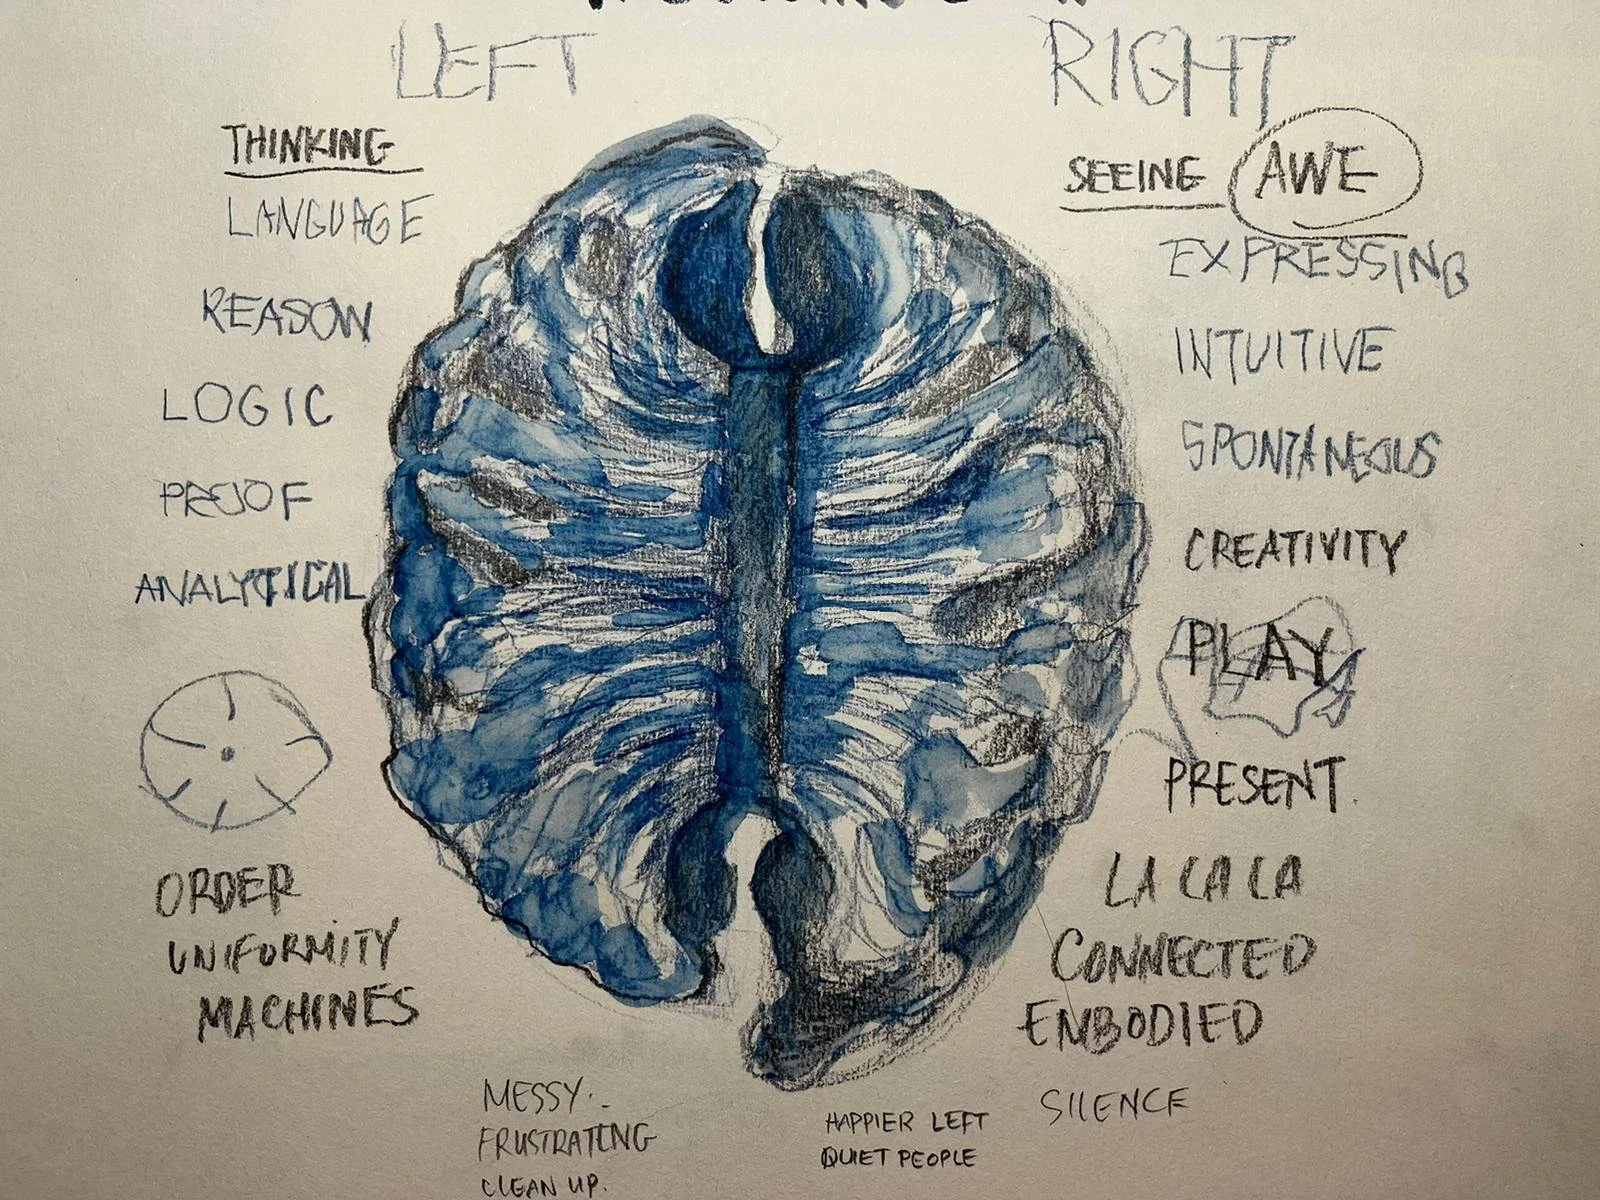 LEFT
RIGHT
THINKING
LANGUAGE
REASON
LOGIC
PROOF
ANALYTICAL
ORDER
UNIFORMITY
MACHINES
SEEING AWE
EXPRESSING
INTUITIVE
SPONTANEOUS
CREATIVITY
PLAY
PRESENT.
LA LA LA
CONNECTED
EMBODIED
SILENCE
MESSY..
FRUSTRATING
CLEAN UP.
HAPPIER LEFT
QUIET PEOPLE